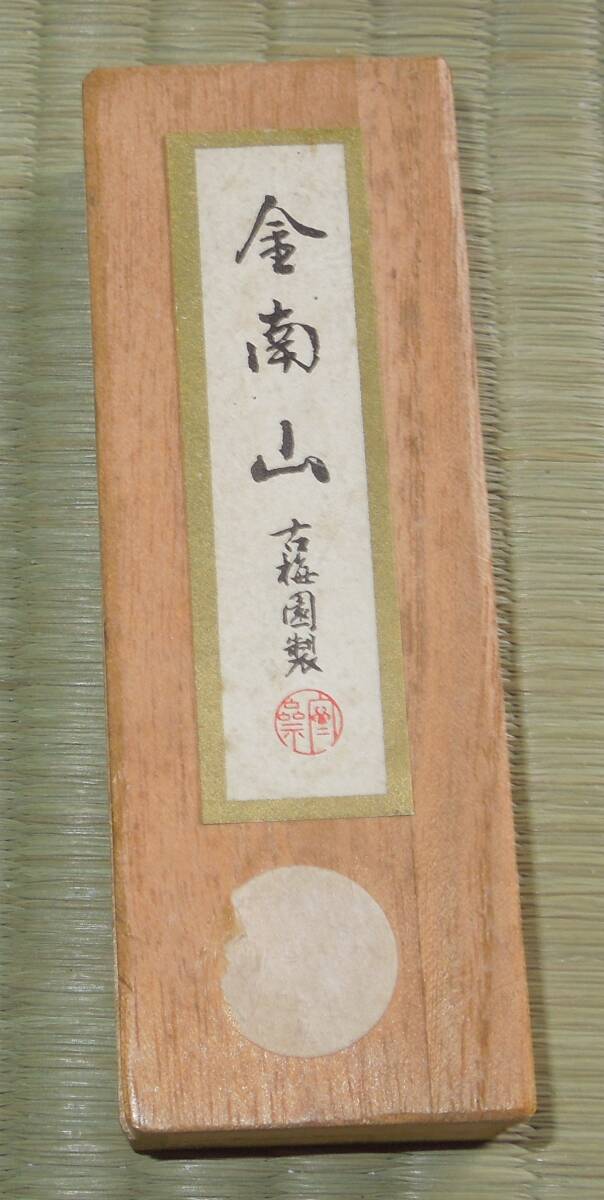 金南山
古梅園製